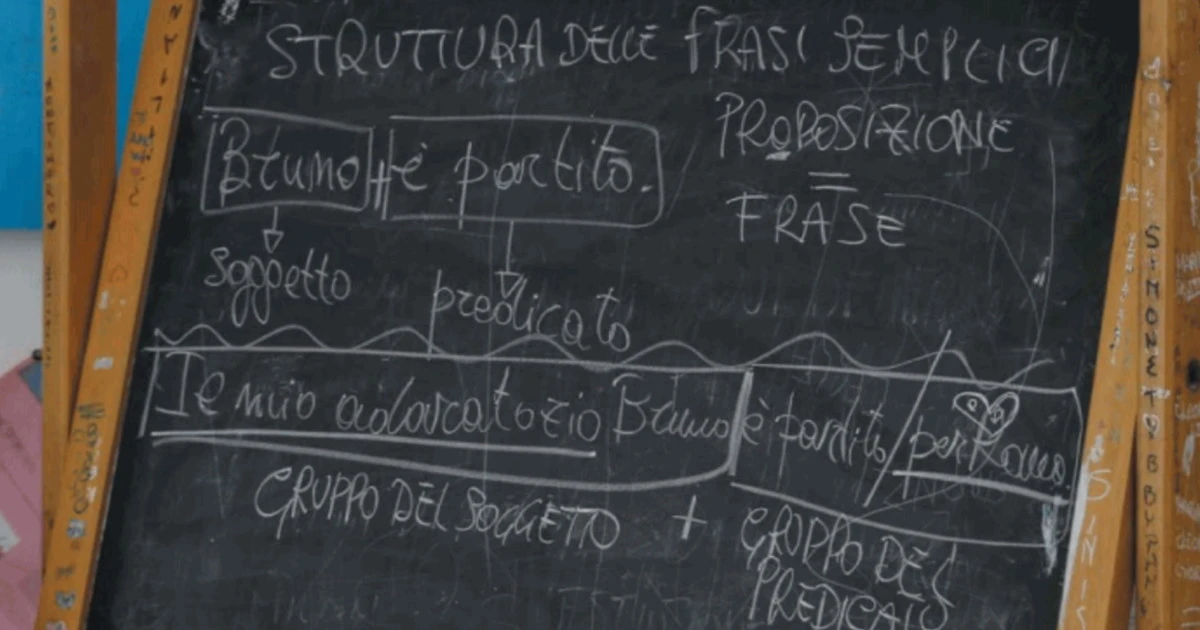 STRUTTURA DELLE FRASI SEMPLICI
PROPOSIZIONE
=
FRASE
Bruno + è partito.
soggetto
predicato
Il mio adorato zio Bruno è partito / per Roma.
GRUPPO DEL SOGGETTO + GRUPPO DEL
PREDICATO
SIMONE